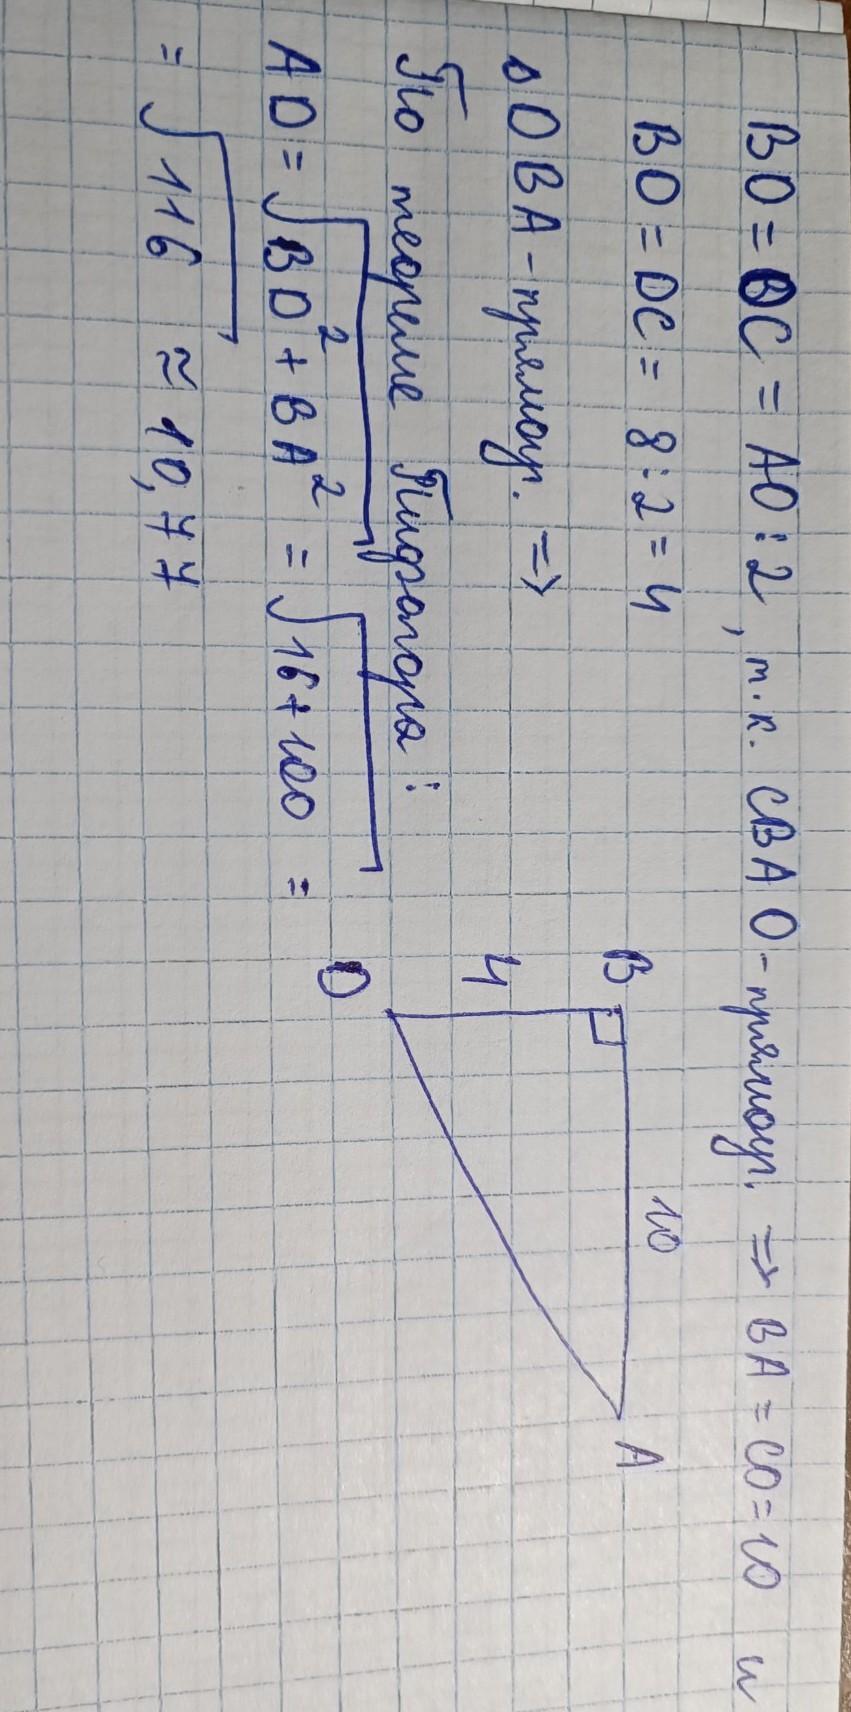 BO = OC = AO : 2, т.к. CBAO - прямоуг. => BA = CO = 10 и
BO = OC = 8 : 2 = 4
△OBA - прямоуг. =>
По теореме Пифагора:
AO = √BO² + BA² = √16+100 =
= √116 ≈ 10,77
B
10
A
4
O